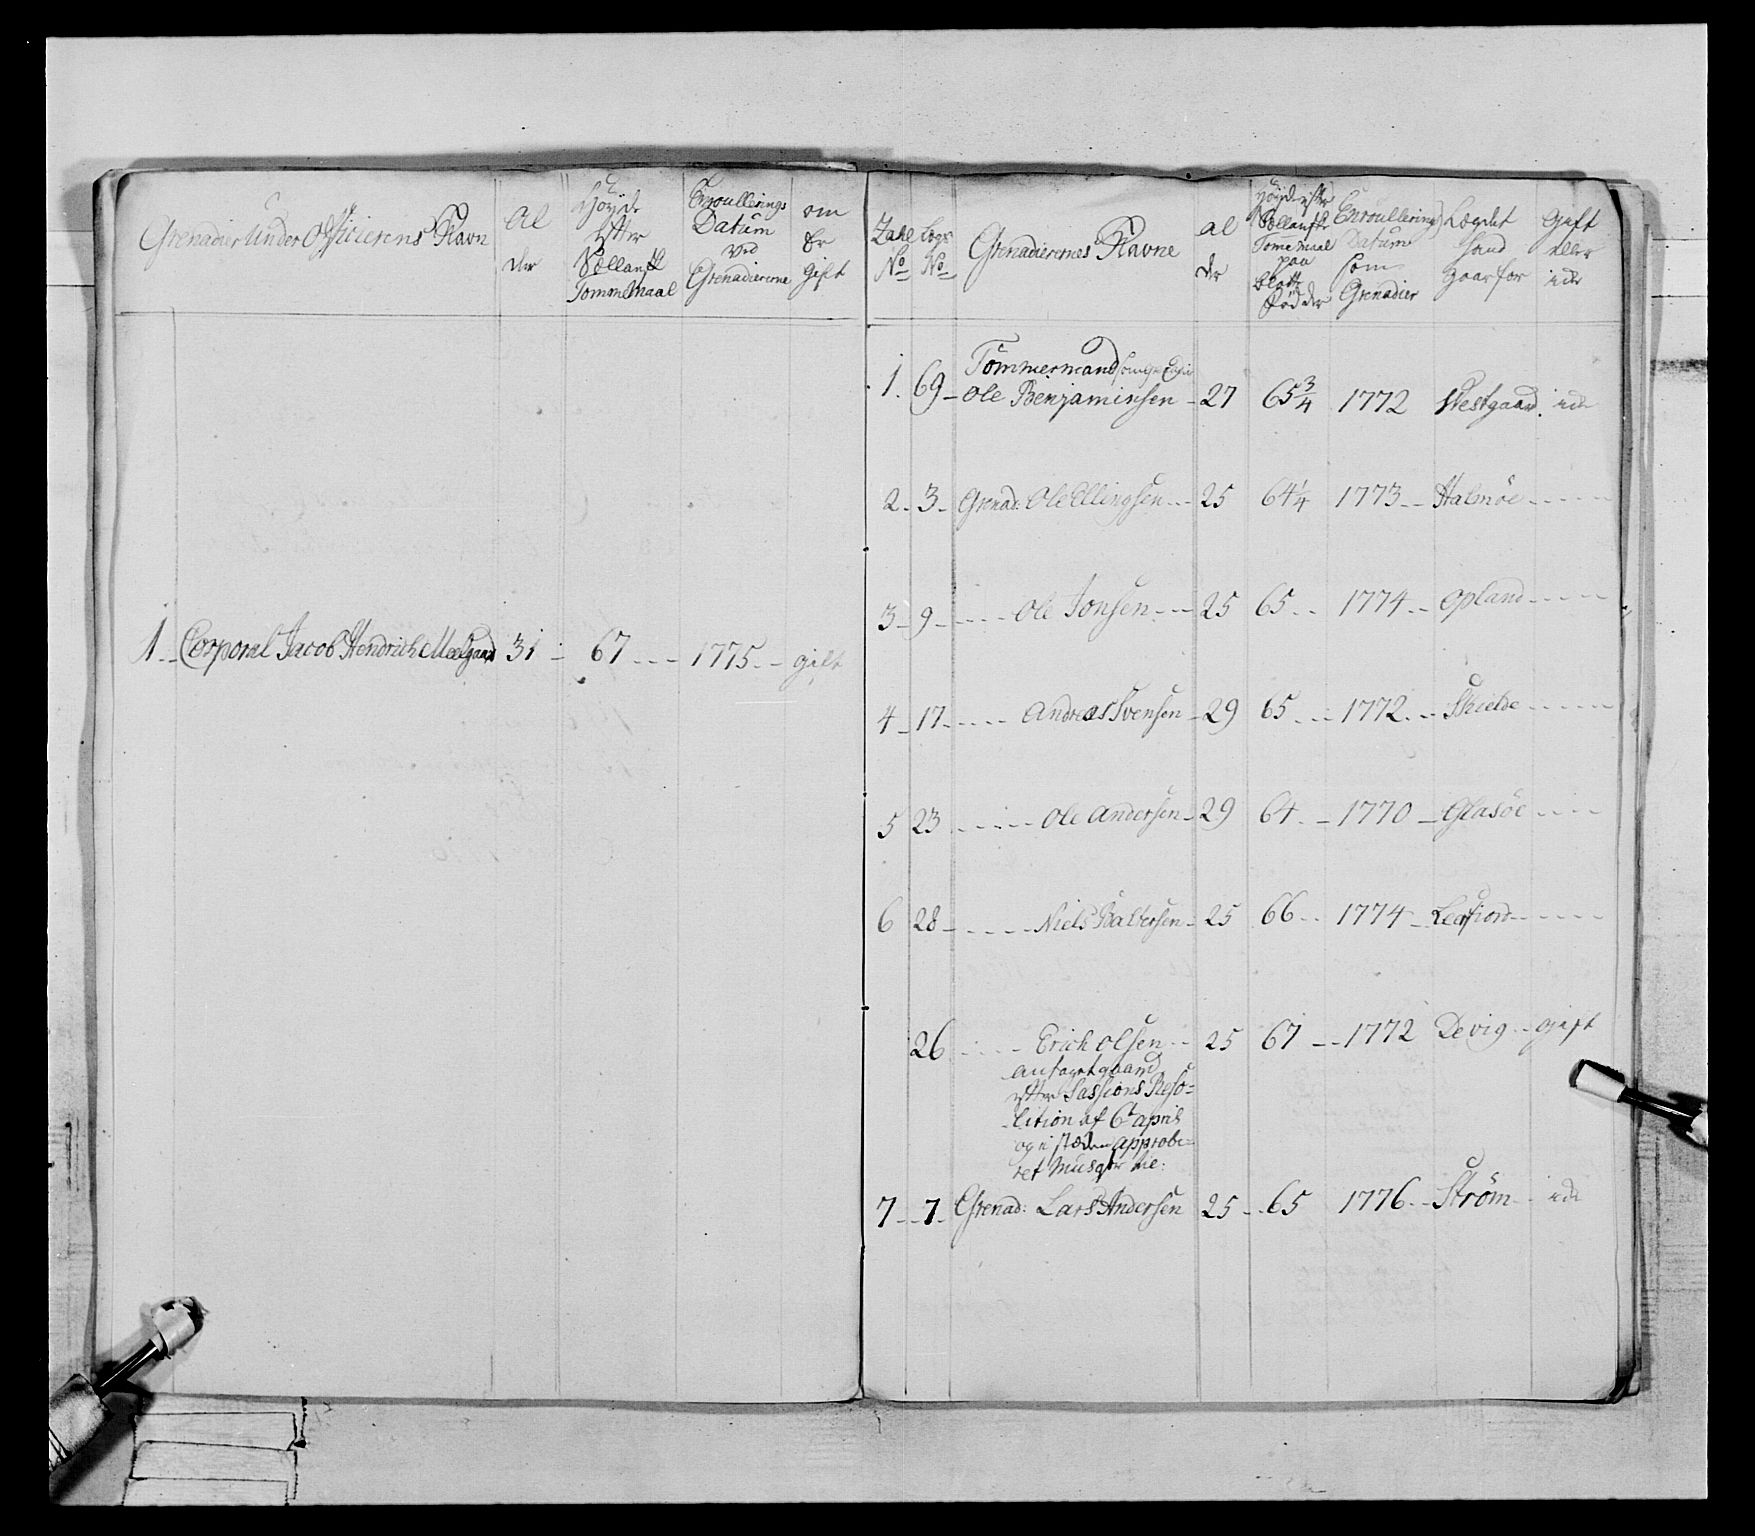 Grenadier Under Officierens Navn
Al
der
Høyde
Efter
Sællansk
Tomme Maal
Enroullerings
Datum
ved
Grenadiererne
om
Er
gift
1 Corporal Jacob Hendrich 31 67 1775 gift
Zahl
No
Comp
No
Grenadierernes Navne
al
der
Høyde efter
Sællanske
Tomme Maal
paa
blotte
Fødder
Enroullerings
Datum
som
Grenadier
Lægdet
hand
gaar for
Gift
eller
icke
Tømmermand
1. 69 Ole Benjaminsen 27 65 3/4 1772 Westgaard icke
2 3 Grenad: Ole Ellingsen 25 64 1/4 1773 Halmøe
3 9 Ole Jonsen 25 65 1774 Opland
4 17 Andreas Svensen 29 65 1772 Skielde
5 23 Ole Andersen 29 64 1770 Glasøe
6 28 Niels Baltersen 25 66 1774 Leerfiord
26 Erich Olsen 25 67 1772 Devig gift
efter Sessions Reso-
lution af 6t april
og i stæden approbe-
ret
7 7 Grenad: Lars Andersen 25 65 1776 Strøm icke